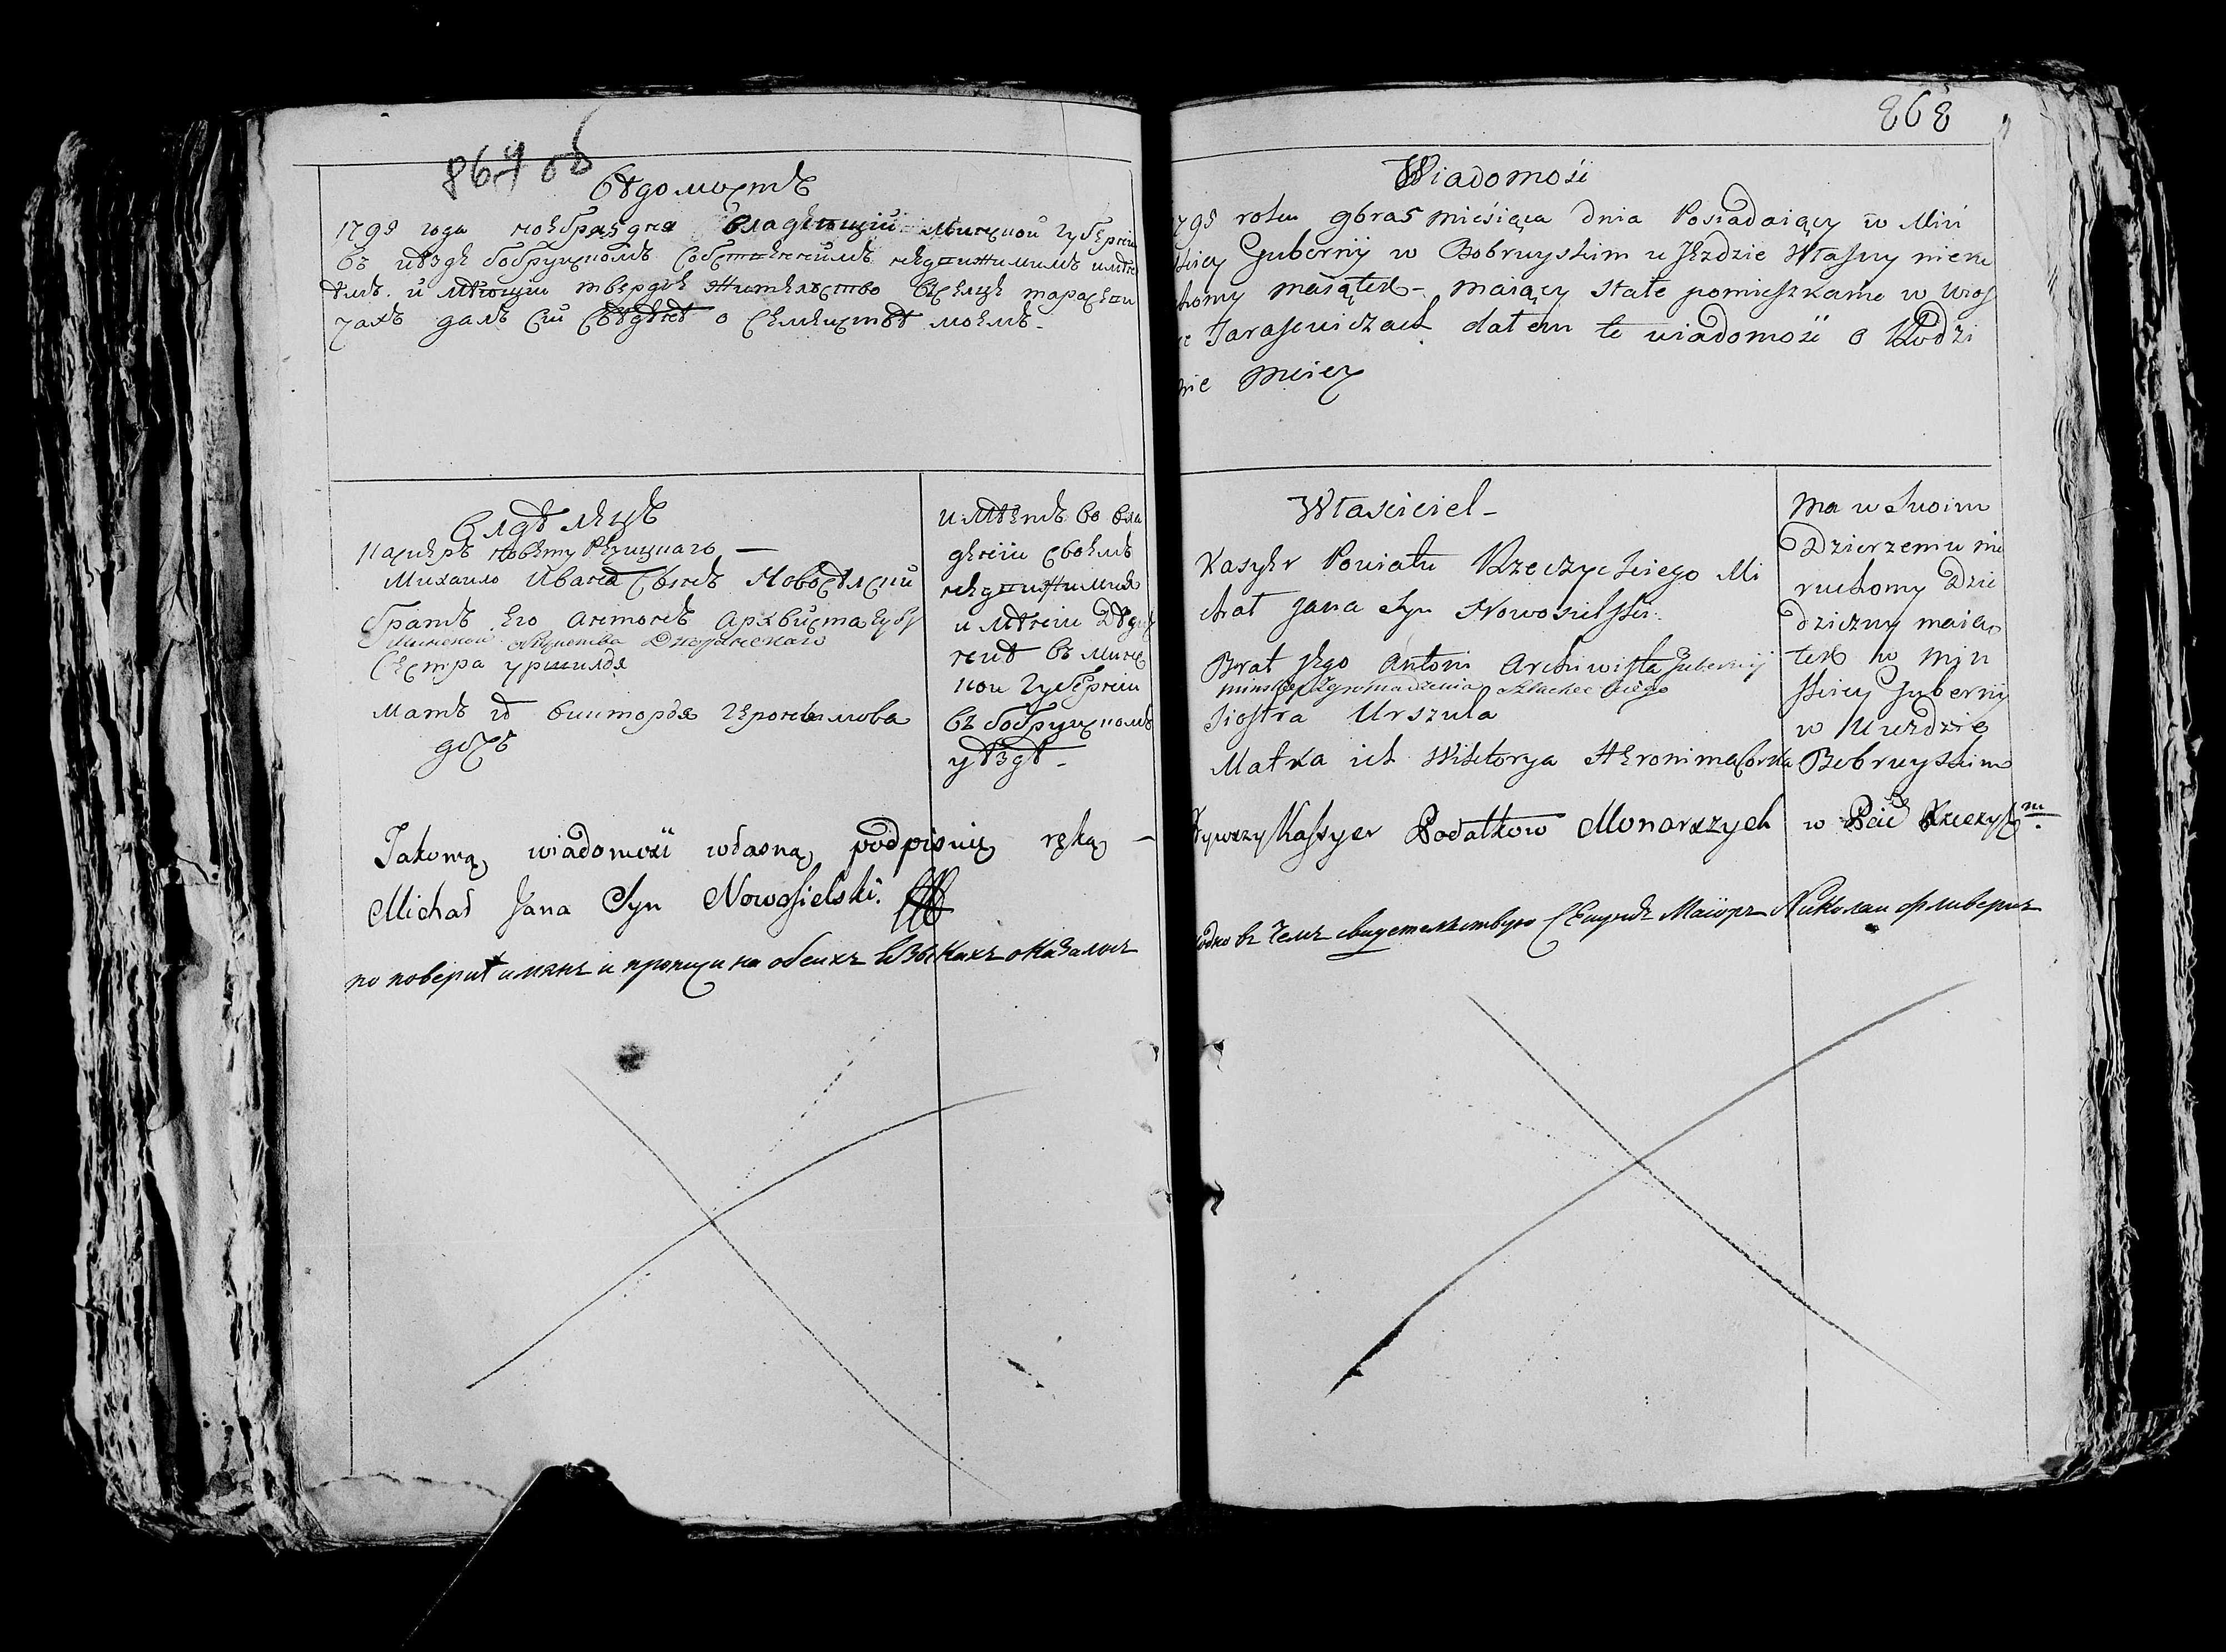 867 об
Вѣдомость
1795 года ноебра 5 дня Владеющiй Минской Губернiи
въ уѣзде бобруискомъ собственнымъ недвижимимъ имѣнi
ѣмъ. и мѣющи твердое жителство въселце тарасеви
чахъ далъ сiи о семеистве моемъ.
Владѣлецъ
Касиеръ повету Речицкаго —
Михаило Ивана сынъ Новоселски
братъ Его Антонъ Архвиста губер
Минской Дворанскаго
Сестра уршиля
Мать ихъ викторiя геронимова
дочь
имѣетъ во вла
денiи своемъ
недвижимия
имѣнiи
въ минс
кои губернiи
въ бобруискомъ
уѣздѣ.
Jakową wiadomość własną podpisuię ręką —
Michał Jana Syn Nowosielski.
по поверите имянъ и на обеихъ языкахъ оказалис
868
Wiadomość
795 roku 9bra 5 miesiąca dnia Posiadaiący w Miń
skiey Gubernij w Bobruyskim ujezdzie Własny nieru
chomy maiątek - maiący stałe pomieszkanie w
Tarasewiczach dałem te wiadomość o Rodzi
nie moiey
Właściciel -
Kasyer Powiatu Rzeczyckiego Mi
chał Jana Syn Nowosielski.
Brat jego Antoni Archiwista Gubernij
minskiey Zgromadzenia szlacheckiego
Siostra Urszula
Matka ich Wiktorya Heronima Corka
ma w swoim
Dzierzeniu nie
ruchomy Dzie
dziczny maią
tek w Miń
skiey Gubernij
w Uiezdzie
Bobruyskim
Bywszy Kassyer Podatkow Monarszych w Pcie Rzeczym.
одно въ чемъ свидетелствую Секундъ Маiоръ Николаи